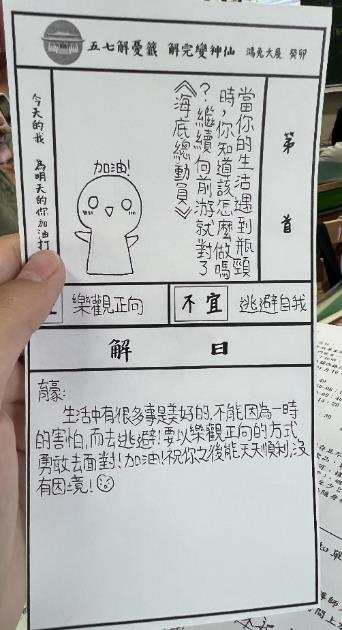 五七解憂籤 解完變神仙 鴻兔大展 癸卯
第 首
當你的生活遇到瓶頸
時，你知道該怎麼做嗎
？繼續向前游就對了
《海底總動員》
加油！
今天的我 為明天的你加油打
樂觀正向 不宜 逃避自我
解 曰
育豪：
生活中有很多事是美好的，不能因為一時
的害怕，而去逃避！要以樂觀正向的方式
勇敢去面對！加油！祝你之後能天天順利，沒
有困境！